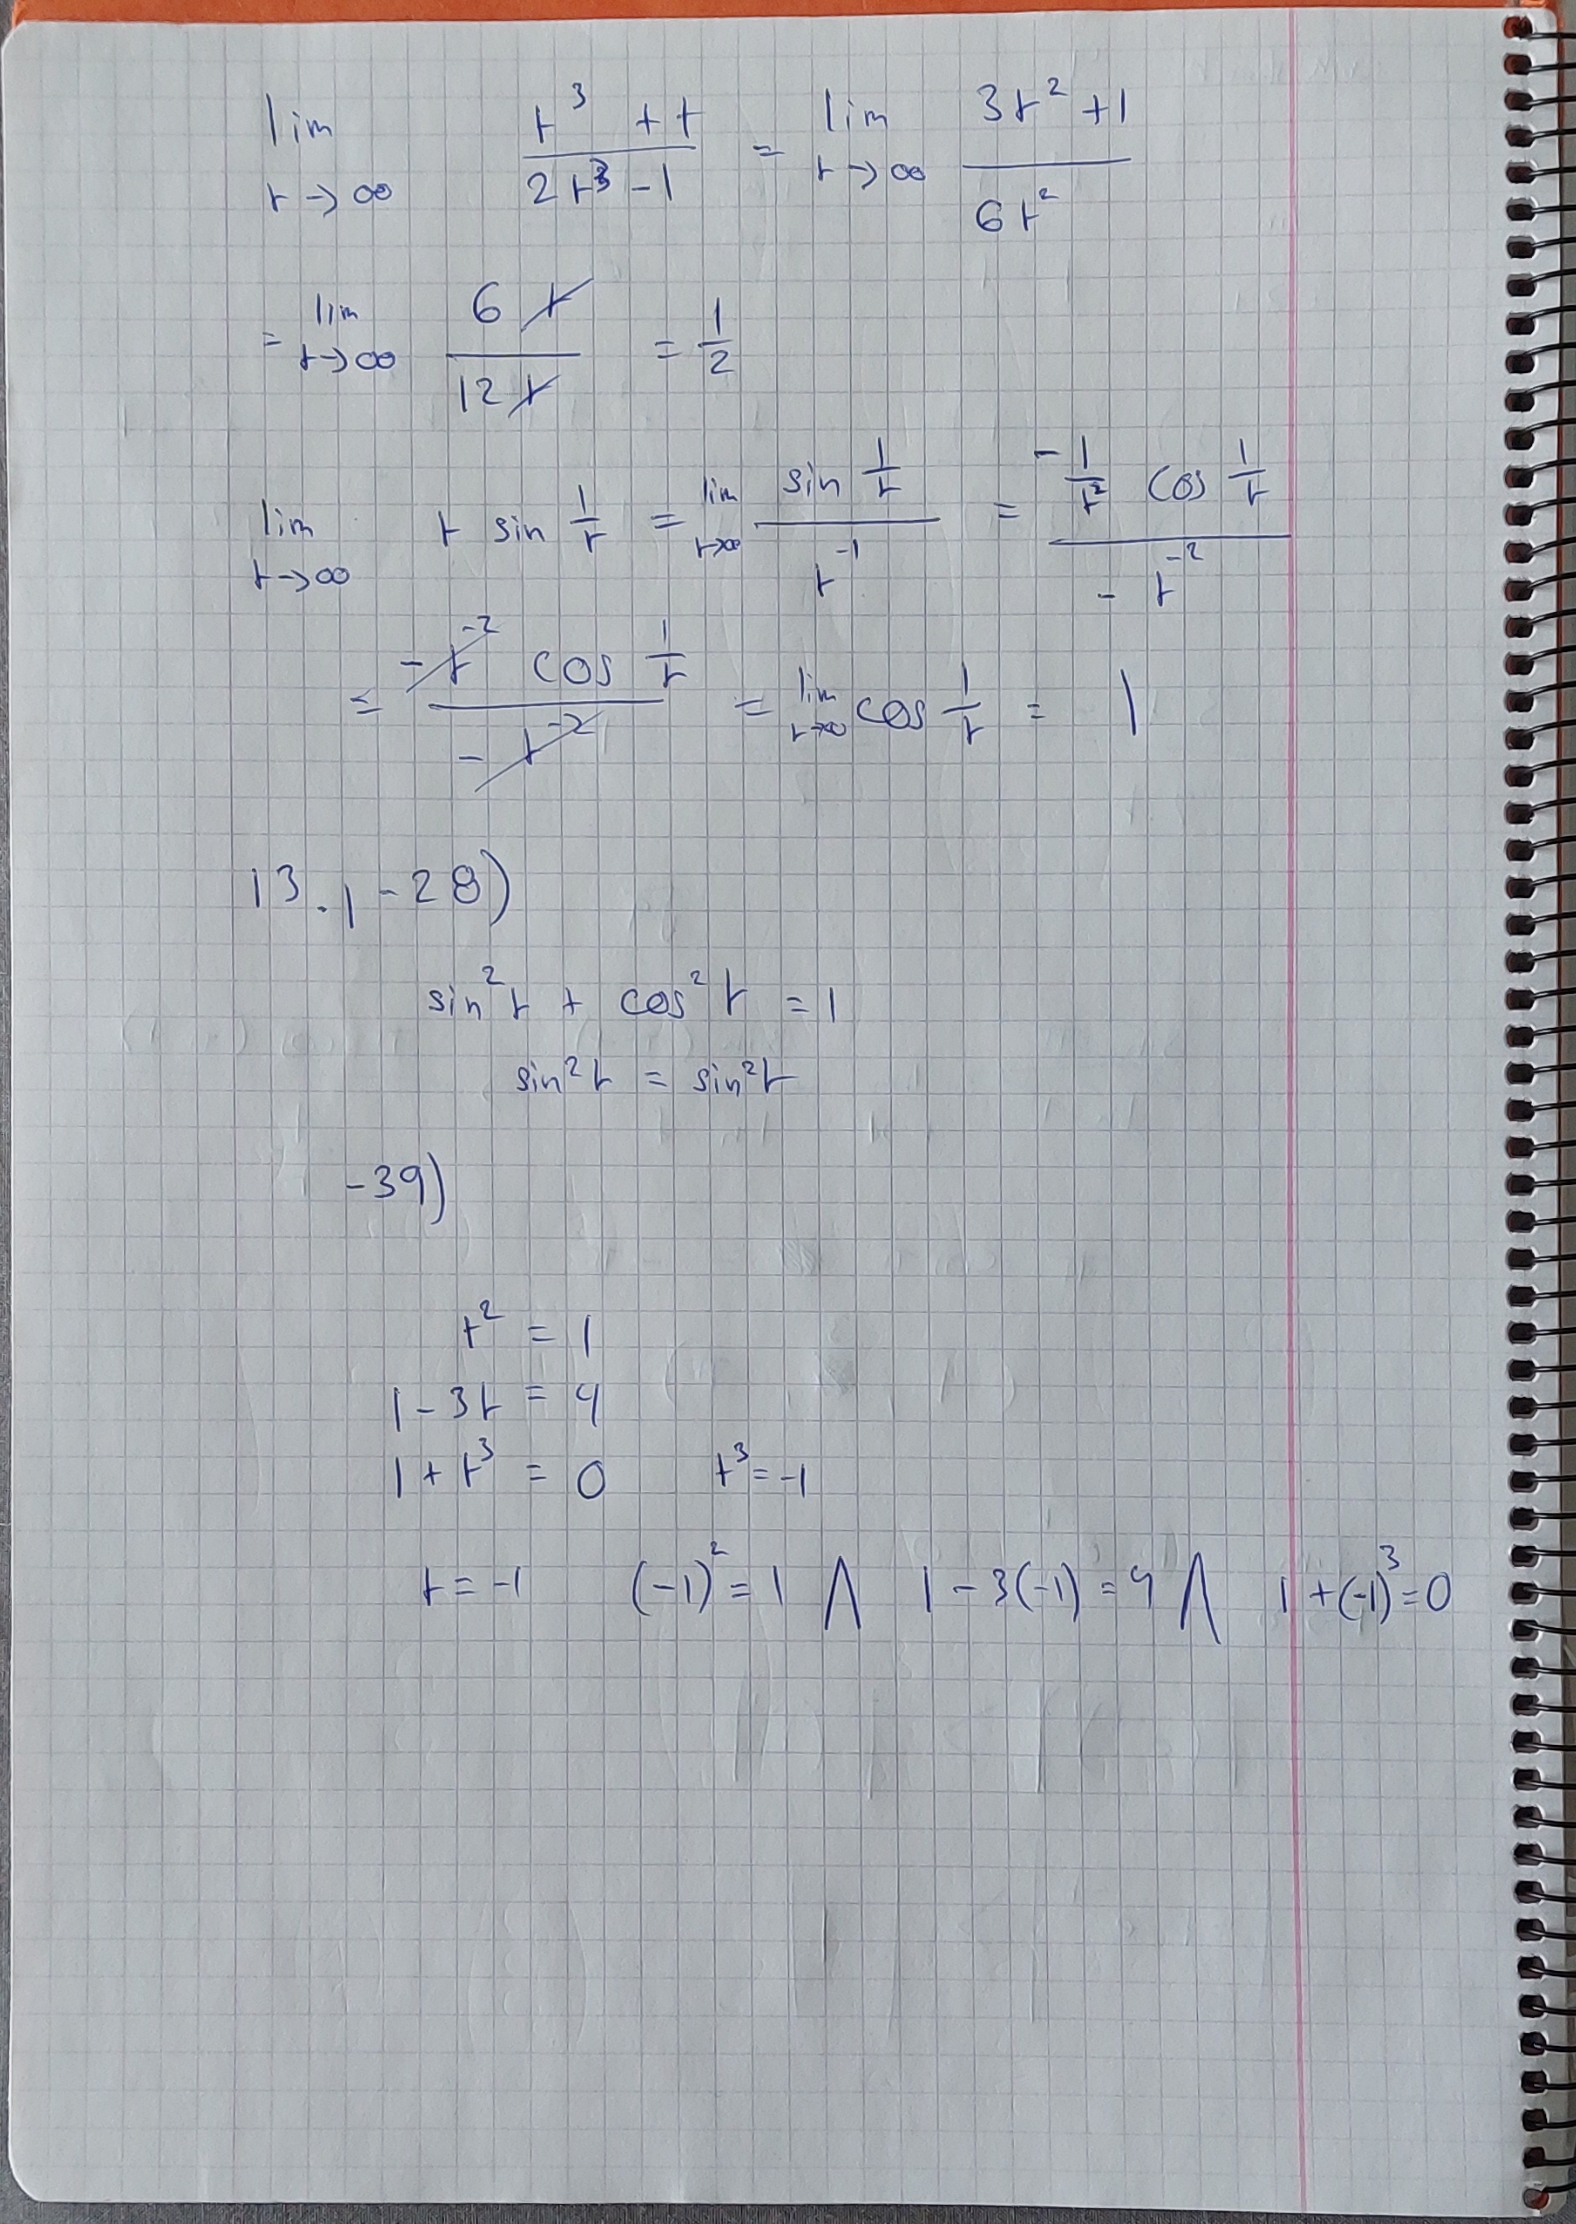 lim t→∞ (t³ + t)/(2t³ - 1) = lim t→∞ (3t² + 1)/(6t²)
= lim t→∞ 6t/12t = 1/2
lim t→∞ t sin 1/t = lim t→∞ (sin 1/t)/(t⁻¹) = (-1/t² cos 1/t)/(-t⁻²)
= (-t⁻² cos 1/t)/(-t⁻²) = lim t→∞ cos 1/t = 1
13.1-28)
sin²t + cos²t = 1
sin²t = sin²t
-39)
t² = 1
1 - 3t = 4
1 + t³ = 0 t³ = -1
t = -1 (-1)² = 1 ∧ 1 - 3(-1) = 4 ∧ 1 + (-1)³ = 0